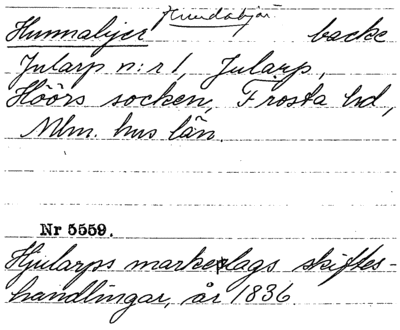 Hundabjär
Hunnabjer backe
Jularp n:r 1, Jularp,
Höörs socken, Frosta hd,
Mlm. hus län.
Nr 5559.
Hjularps markelags skiftes-
handlingar, år 1836.